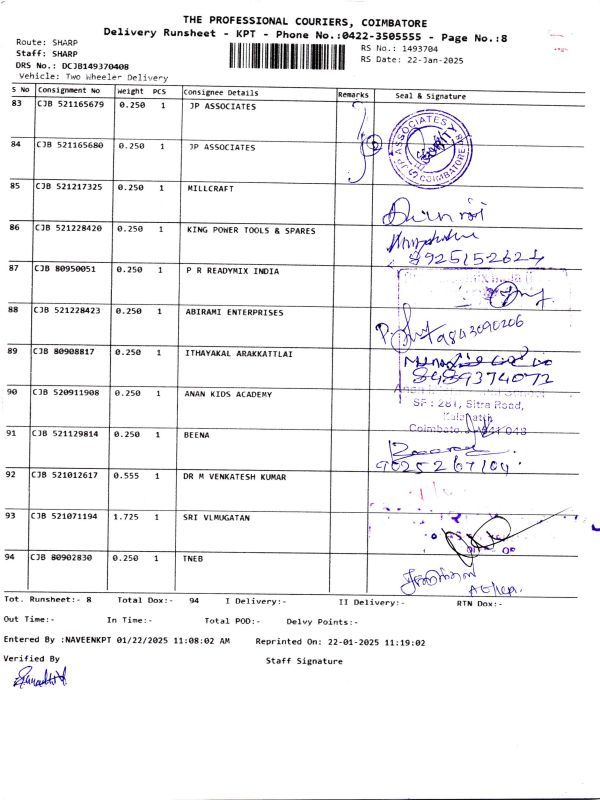 THE PROFESSIONAL COURIERS, COIMBATORE
Delivery Runsheet - KPT - Phone No.:0422-3505555 - Page No.:8
Route: SHARP
RS No.: 1493704
Staff: SHARP
RS Date: 22-Jan-2025
DRS No.: DCJB149370408
Vehicle: Two Wheeler Delivery
S No Consignment No Weight PCS Consignee Details Remarks Seal & Signature
83 CJB 521165679 0.250 1 JP ASSOCIATES
84 CJB 521165680 0.250 1 JP ASSOCIATES
JP ASSOCIATES COIMBATORE
SECURITY
85 CJB 521217325 0.250 1 MILLCRAFT
86 CJB 521228420 0.250 1 KING POWER TOOLS & SPARES
8925152624
87 CJB 80950051 0.250 1 P R READYMIX INDIA
88 CJB 521228423 0.250 1 ABIRAMI ENTERPRISES
9843090206
89 CJB 80908817 0.250 1 ITHAYAKAL ARAKKATTLAI
8489374072
90 CJB 520911908 0.250 1 ANAN KIDS ACADEMY
SF : 281, Sitra Road,
Kalapatti,
Coimbatore - 641 048
91 CJB 521129814 0.250 1 BEENA
9025267104
92 CJB 521012617 0.555 1 DR M VENKATESH KUMAR
93 CJB 521071194 1.725 1 SRI VLMUGATAN
94 CJB 80902830 0.250 1 TNEB
Tot. Runsheet:- 8 Total Dox:- 94 I Delivery:- II Delivery:- RTN Dox:-
Out Time:- In Time:- Total POD:- Delvy Points:-
Entered By :NAVEENKPT 01/22/2025 11:08:02 AM Reprinted On: 22-01-2025 11:19:02
Verified By Staff Signature